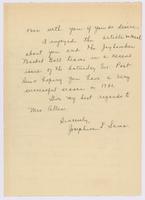 now with you if you so desire.
I enjoyed the article
about you and the Jayhawker
Basket Ball team in a recent
issue of the Saturday Eve. Post
Here's hoping you have a very
successful season in
Give my best regards to
Mrs. Allen.
Sincerely,
Josephine F.